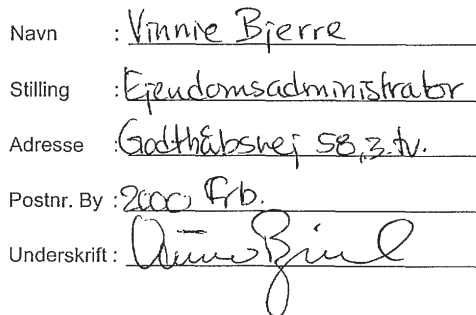 Navn : Vinnie Bjerre
Stilling : Ejendomsadministrator
Adresse : Godthåbsvej 58, 3. tv.
Postnr. By : 2000 Frb.
Underskrift :